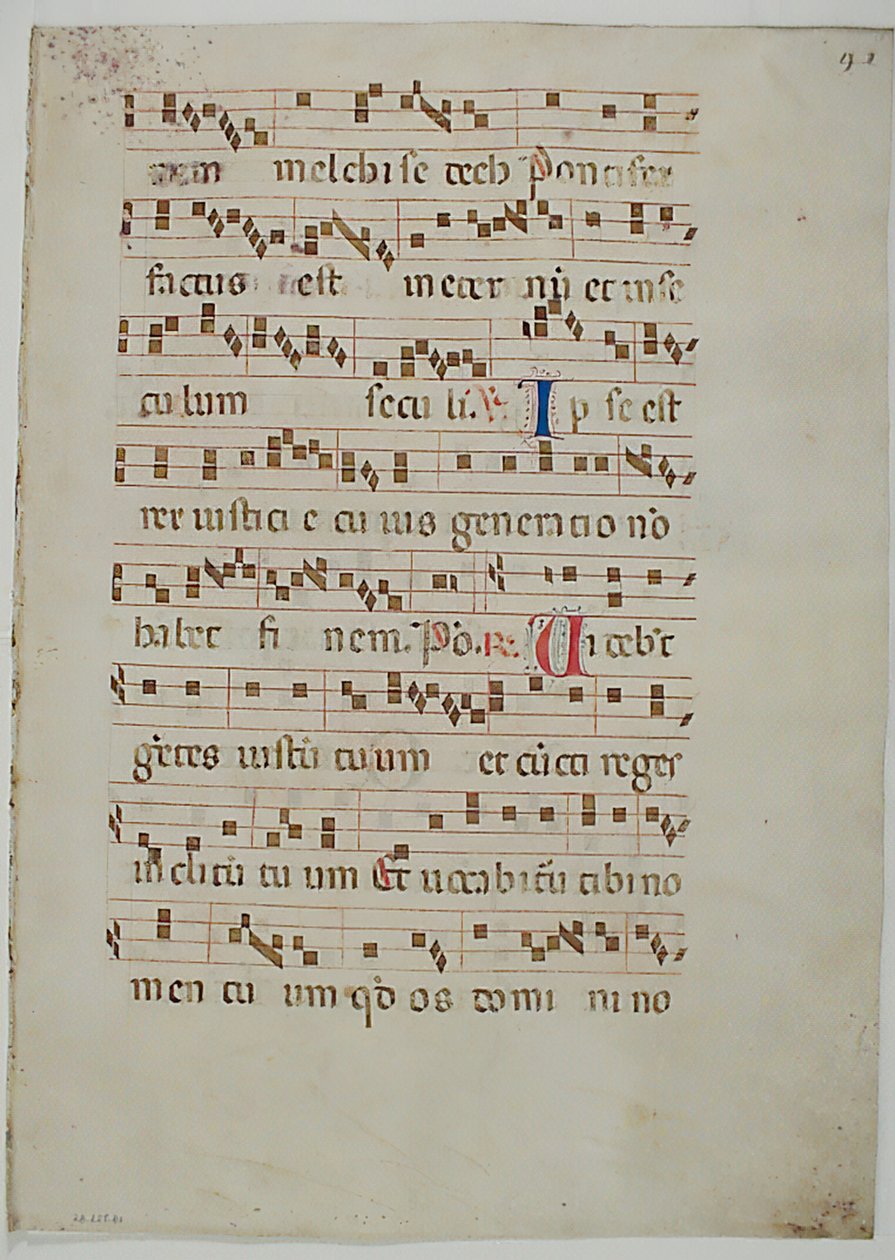 nem melchise dech Pontifex
factus est in eter nu̅ et in se
cu lum secu li. ℣. I p se est
rex iustici e cu ius generacio no̅
habet fi nem. Po̅. ℟. Uidebu̅t
ge̅tes iustu̅ tuum et cu̅cti reges
inclitu̅ tu um Et uocabitu̅ tibi no
men tu um qd̅ os domi ni no